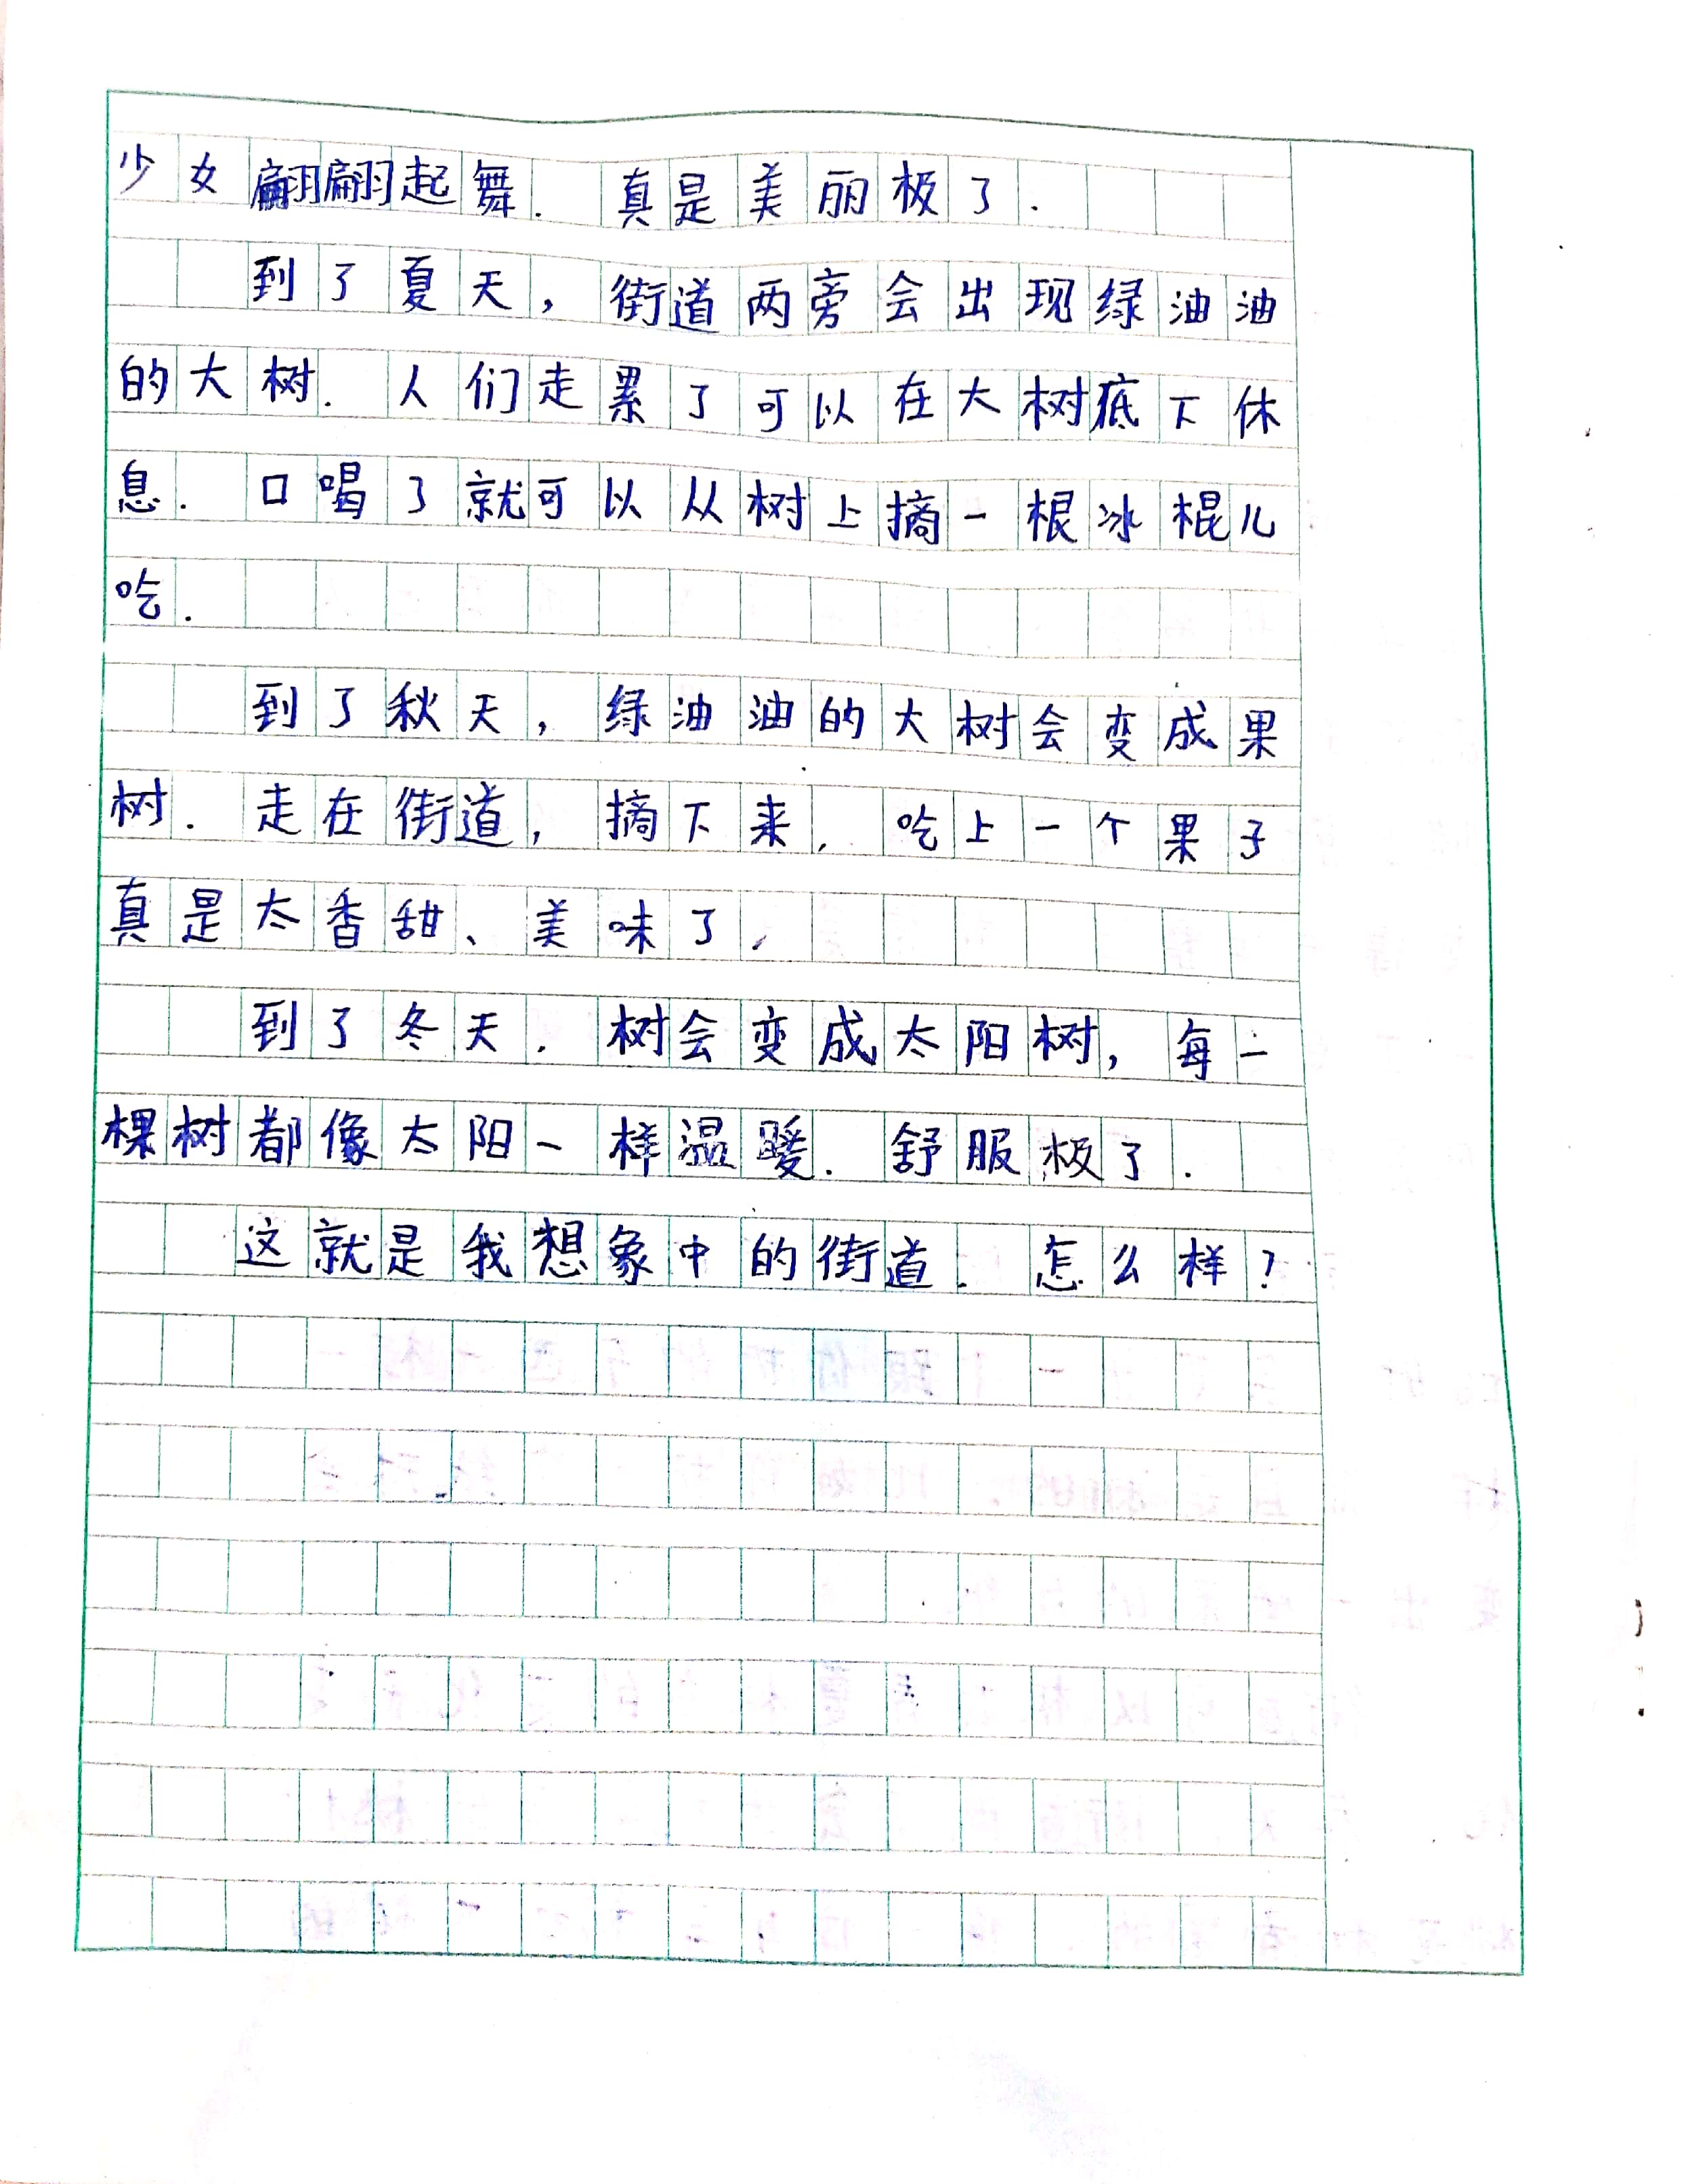 少女翩翩起舞.真是美丽极了.
到了夏天，街道两旁会出现绿油油
的大树.人们走累了可以在大树底下休
息.口喝了就可以从树上摘一根冰棍儿
吃.
到了秋天，绿油油的大树会变成果
树.走在街道，摘下来，吃上一个果子
真是太香甜、美味了.
到了冬天.树会变成太阳树，每一
棵树都像太阳一样温暖.舒服极了.
这就是我想象中的街道.怎么样？